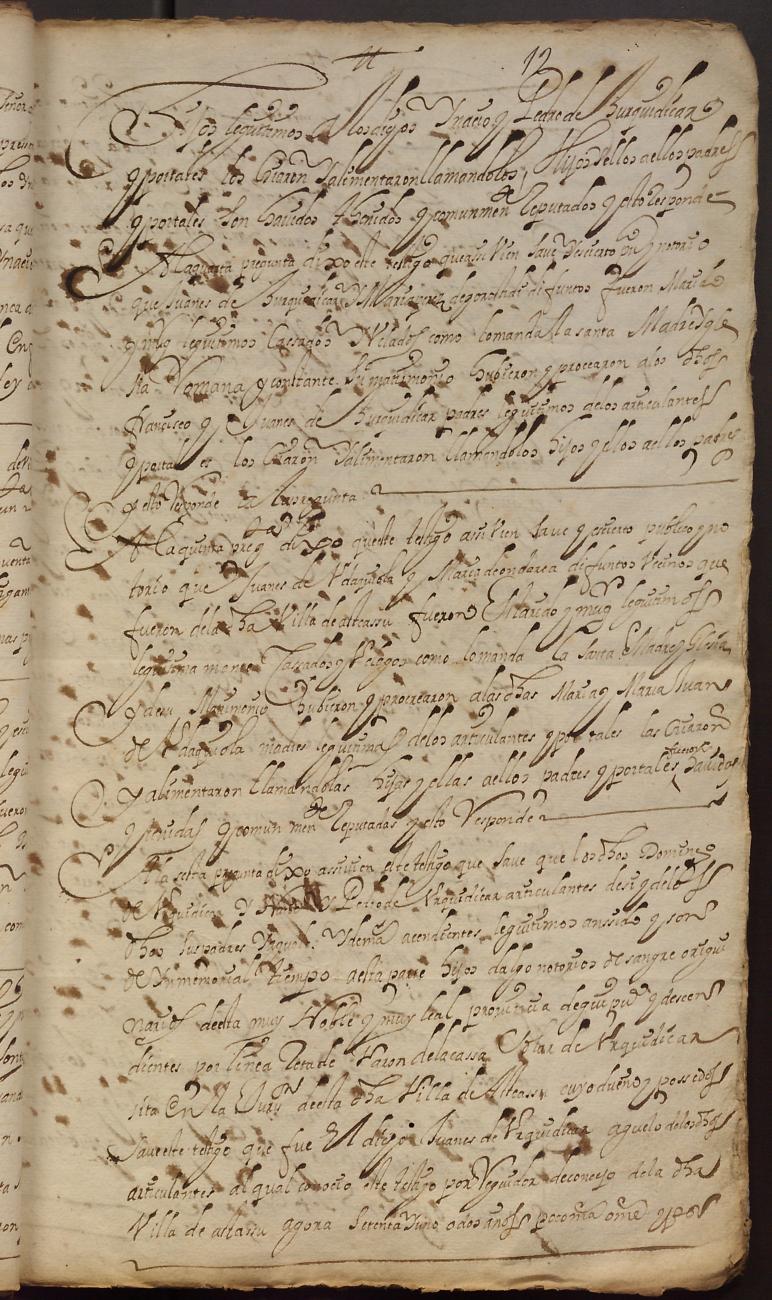 12
hijos legitimos a los dichos Ynacio y Pedro de Hurquidicar
y por tales los criaron y alimentaron llamandolos hijos y ellos a ellos padres
y por tales son havidos thenidos y comunmente Reputados y esto Responde
A la quarta pregunta dixo este testigo que assi vien save es cierto pu notorio
que Juanes de Hurquidicar y Maria difuntos fueron Marido
y muger legitimos Cassados Velados como lo manda la santa Madre ygle
sia Romana y constante su matrimonio hubieron y procrearon a los dhos
francisco y Juanes de hurquidicar padres legitimos de los articulantes
y por tales los criaron y alimentaron llamandolos hijos y ellos a ellos padres
y esto Responde a la pregunta
A la quinta preg dixo queste testigo assi vien save y es cierto publico y no
torio que Juanes de Vdaguiola y Maria de ondarca difuntos Vecinos que
fueron de la dha Villa de alcassu fueron Marido y muger legitimos
legitima mente Cassados y Velados como lo manda la Santa Madre Yglesia
y de su Matrimonio hubieron y procrearon a las dhas Maria y Maria Juan
de Vdaguiola madres legitimas de los articulantes y por tales las criaron
y alimentaron llamandolas hijas y ellas a ellos padres y por tales fueron havidas
y thenidas y comun mente Reputadas y esto Responde
A la sesta pregunta dixo assi vien este testigo que save que los dhos Domingo
de Vrquidicar y y Pedro de Vrquidicar articulantes de si y de los
dhos sus padres Aguelos y demas acendientes legitimos an sido y son
de Ynmemorial tiempo a esta parte hijos dalgo notorios de sangre origi
narios de esta muy Noble y muy leal provincia de guipuz y descen
dientes por linea Reta de Varon de la cassa Solar de Vrquidicar
sita en la Juris de esta dha Villa de Alcassu cuyo dueño y posseedor
save este testigo que fue El dicho Juanes de Vrquidicar aguelo de los dhos
articulantes al qual conocio este testigo por Regidor de concejo de la dha
Villa de alcassu agora setenta y uno o dos años poco mas o me y por